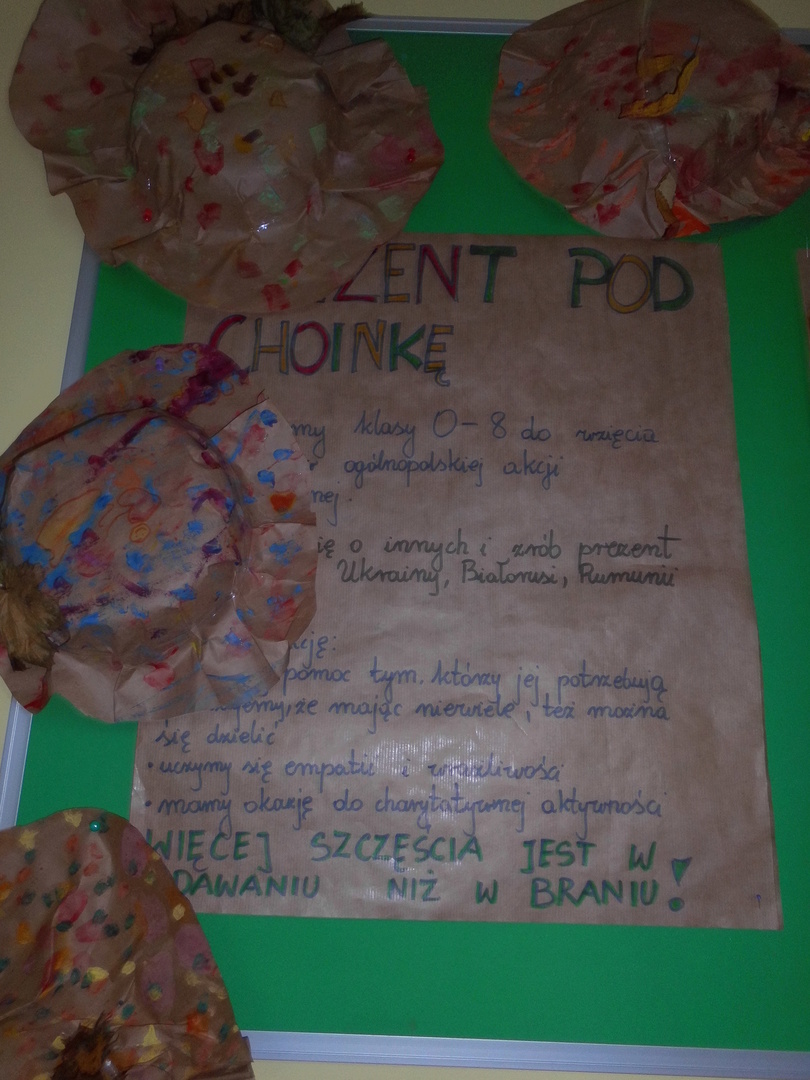 ZENT POD
CHOINKĘ
my klasy 0-8 do wzięcia
ogólnopolskiej akcji
nej.
ię o innych i zrób prezent
Ukrainy, Białorusi, Rumunii
cję:
pomoc tym, którzy jej potrzebują
ujemy, że mając niewiele, też można
się dzielić
• uczymy się empatii i wrażliwości
• mamy okazję do charytatywnej aktywności
WIĘCEJ SZCZĘŚCIA JEST W
DAWANIU NIŻ W BRANIU!